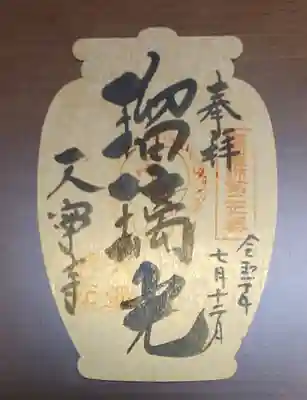 奉拝
令和五年
七月十二日
瑠璃光
天寧寺